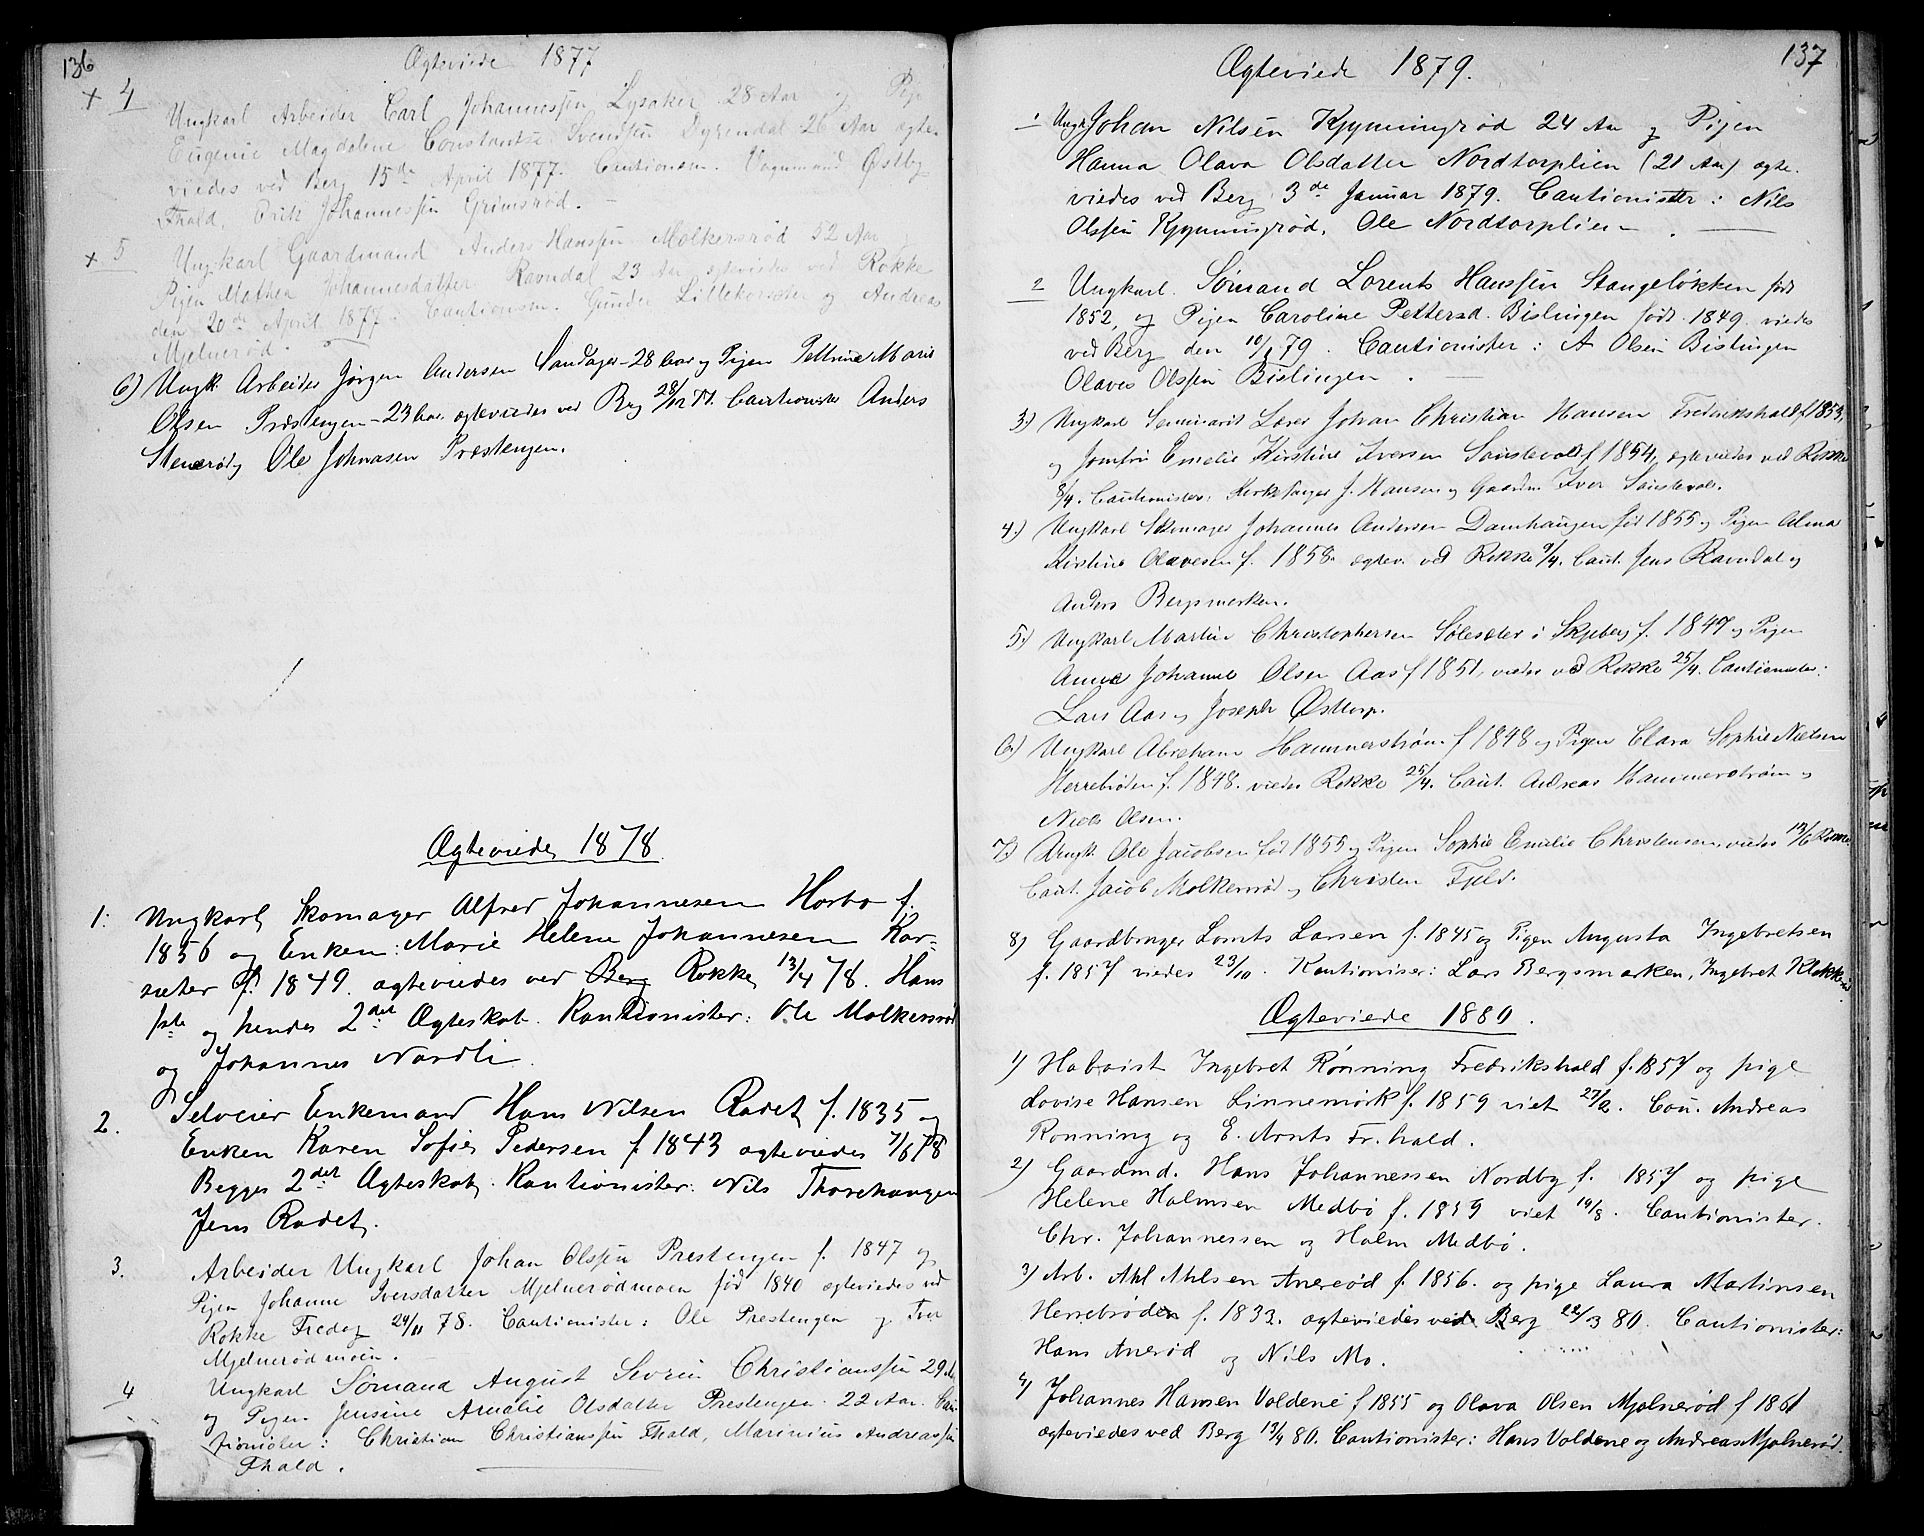 136
Ægteviede 1877
+ 4
Ungkarl Arbeider Carl Johannessen Lysaker 28 Aar og Pige
Eugenie Magdalene Constantse Svendsen Dyrendal 26 Aar ægte-
viedes ved Berg 15de April 1877. Cautionsm. Vognmand Østby
Fhald, Erik Johannessen Grimsrød.
+ 5
Ungkarl Gaardmand Anders Hanssen Molkersrød 52 Aar
Pigen Mathea Johannesdatter Ravndal 23 Aar ægteviedes ved Rokke
den 20de April 1877. Cautionsm. Gunder Lillekorsæter og Andreas
Mjelnerød.
6) Ungk. Arbeider Jørgen Andersen Sandager - 28 Aar og Pigen Pettrine Marie
Olsen Præstengen - 23 Aar ægteviedes ved Berg 28/12 77. Cautionister Anders
Stenerød og Ole Johnasen Præstengen.
Ægteviede 1878
1: Ungkarl Skomager Alfred Johannesen Horbo f.
1856 og Enken: Marie Helene Johannesen Kor-
sæter f. 1849. ægteviedes ved Berg Rokke 13/4 78. Hans
1ste og hendes 2det Ægteskab. Kautionister: Ole Molkersrød
og Johannes Nordli
2. Selveier Enkemand Hans Nilsen Rødet f. 1835 og
Enken Karen Sofie Pedersen f 1843 ægteviedes 7/6 78
Begges 2det Ægteskab. Kautionister: Nils Thorehaugen
Jens Rødet.
3. Arbeider Ungkarl Johan Olssen Prestengen f. 1847 og
Pigen Johanne Iversdatter Mjelnerødmoen fød 1840 ægteviedes ved
Rokke Fredag 29/11 78. Cautionister: Ole Prestengen og Iver
Mjelnerødmoen.
4 Ungkarl Sømand August Severin Christianssen 29 Aar
og Pigen Jensine Amalie Olsdatter Prestengen 22 Aar. Cau-
tionister: Christian Christianssen Fhald, Marinius Andreassen
Fhald.
137
Ægteviede 1879.
1 Ungk. Johan Nilsen Kjynningrød 24 Aar og Pigen
Hanna Olava Olsdatter Nordtorplien (21 Aar) ægte-
viedes ved Berg 3de Januar 1879. Cautionister: Nils
Olssen Kjynningrød, Ole Nordtorplien.
2 Ungkarl. Sømand Lorents Hanssen Stangeløkken født
1852, og Pigen Caroline Pettersd. Bislingen født 1849. viedes
ved Berg den 10/1 79. Cautionister: A Olsen Bislingen
Olaves Olssen Bislingen.
3) Ungkarl Seminarist Lærer Johan Christian Hansen Frederikshald f 1853,
og Jomfru Emelie Kirstine Iversen Sandevold f 1854, ægteviedes ved Rokke
8/4. Cautionister: Kirkesanger J. Hansen og Gaardm. Iver
4) Ungkarl Skomager Johannes Andersen Damhaugen fød 1855 og Pigen Alma
Kirstine Olavesen f. 1858. ægtev. ved Rokke 9/4. Caut. Jens Ravndal og
Anders Bergsmarken.
5) Ungkarl Martin Christophersen Solesæter i Skjeberg f. 1847 og Pigen
Anne Johanne Olsen Aas f 1851, viedes ved Rokke 25/4. Cautionister:
Lars Aas og Joseph Østtorp.
6) Ungkarl Abraham Hammerstrøm f 1848 og Pigen Clara Sophie Nielsen
Herrebrøden f. 1848. viedes Rokke 25/4. Caut. Andreas Hammerstrøm og
Niels Olsen.
7) Ungk. Ole Jacobsen fød 1855 og Pigen Sophie Emilie Christensen, viedes 13/6 Rokke
Caut. Jacob Molkersrød og Christen Fjeld.
8) Gaardbruger Lornts Larsen f. 1845 og Pigen Augusta Ingebretsen
f. 1857 viedes 23/10. Kautioniser: Lars Bergsmarken, Ingebret
Ægteviede 1880.
1) Hoboist Ingebret Rønning Fredrikshald f. 1857 og pige
Lovise Hansen Linnemørk f. 1859 viet 27/2. Cau. Andreas
Rønning og E. Arnts Fr.hald.
2) Gaardmd. Hans Johannessen Nordby f. 1857 og pige
Helene Halmsen Medbø f. 1859 viet 19/8. Cautionister:
Chr. Johannessen og Halm Medbø.
3) Arb. Ahl Ahlsen Anerød f. 1856. og pige Laura Martinsen
Herrebrøden f. 1832. ægteviedes ved Berg 22/3 80. Cautionister:
Hans Anerød og Nils Mo.
4) Johannes Hansen Voldene f 1855 og Olava Olsen Mjølnerød f 1861
ægteviedes ved Berg 13/4 80. Cautionister: Hans Voldene og Andreas Mjølnerød.